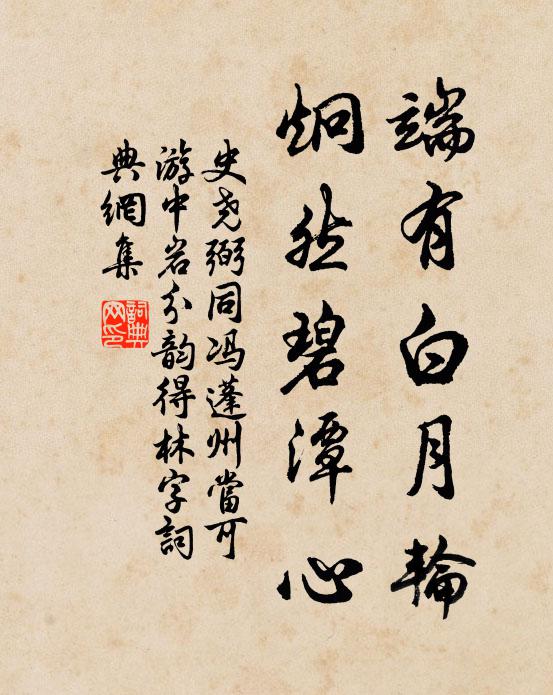 端有白月輪
炯然碧潭心
史尧弼同冯蓬州當可
游中岩分韵得林字詞
典網集
詞典
网印